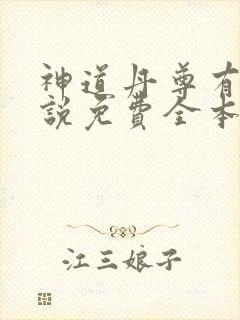 神道丹尊有
説免費全本
江三娘子